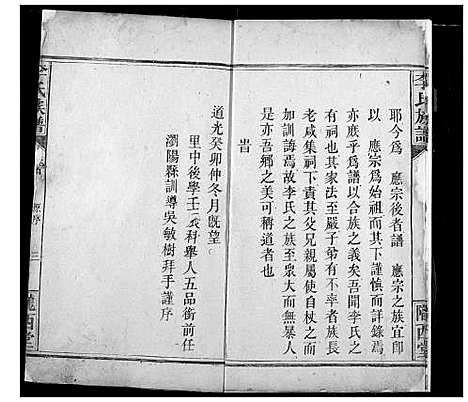 李氏族譜
隴西堂
耶今爲　應宗後者譜　應宗之族宜卽
以　應宗爲始祖而其下謹愼而詳錄焉
亦庶乎爲譜以合族之義矣吾聞李氏之
有祠也其家法至嚴子弟有不率者族長
老咸集祠下責其父兄親屬使自杖之而
加訓誨焉故李氏之族至衆大而無暴人
是亦吾鄉之美可稱道者也
旹
道光癸卯仲冬月旣望
里中後學壬辰科舉人五品銜前任
瀏陽縣訓導吳敏樹拜手謹序
李氏族譜
序
三
隴西堂